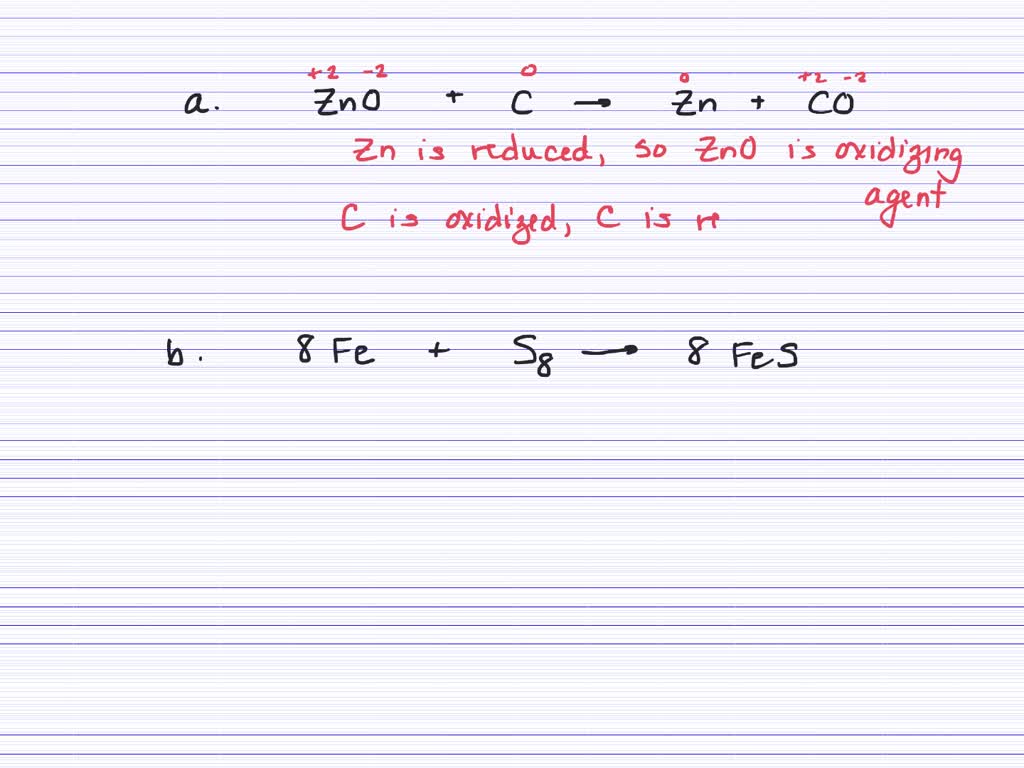 +2 -2 0 0 +2 -2
a. ZnO + C → Zn + CO
Zn is reduced, so ZnO is oxidizing
agent
C is oxidized, C is re
b. 8 Fe + S₈ → 8 FeS